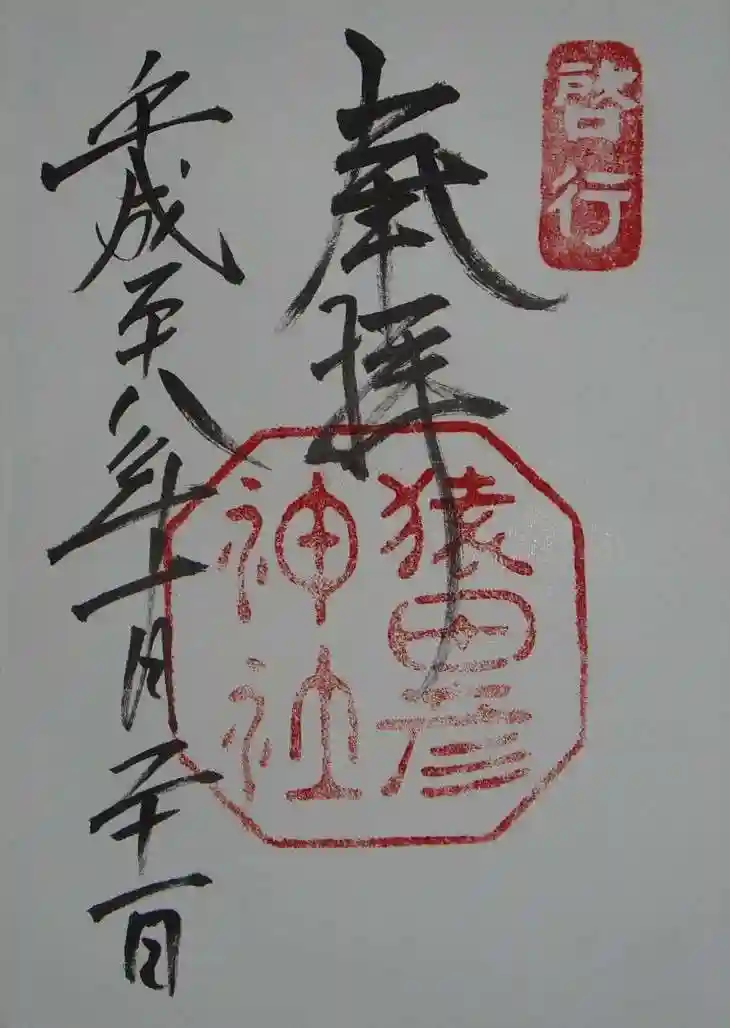 啓行
奉拝
猿田彦
神社
平成二十八年一月二十一日